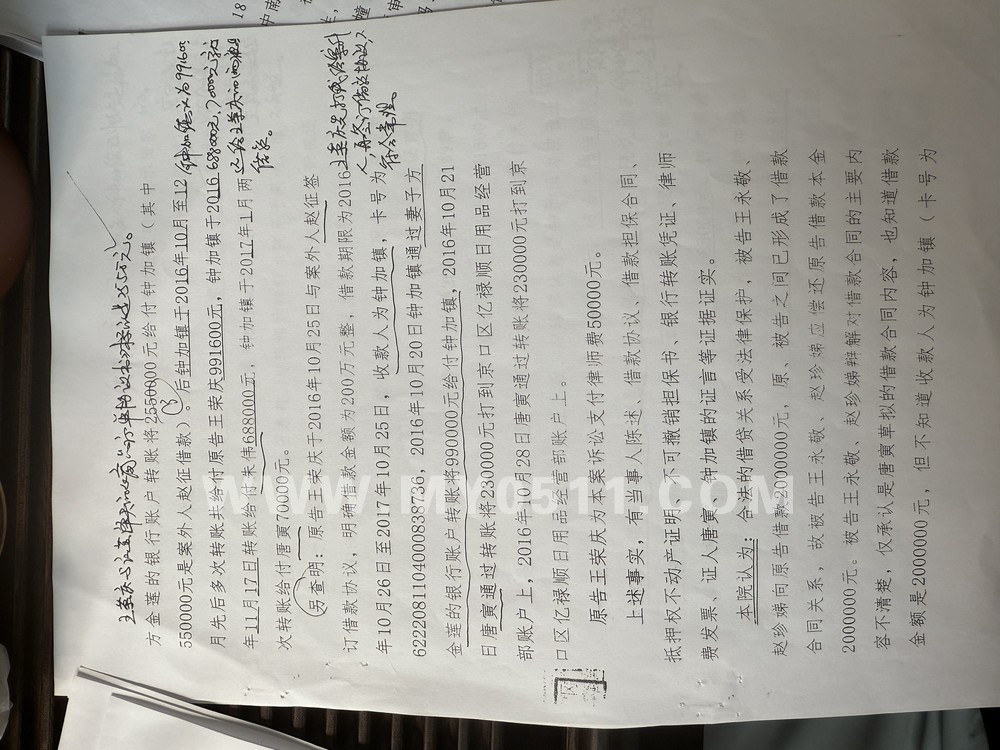 方金莲的银行账户转账将2550000元给付钟加镇（其中
550000元是案外人赵征借款）。后钟加镇于2016年10月至12
月先后多次转账共给付原告王荣庆991600元，钟加镇于2016
年11月17日转账给付朱伟688000元，钟加镇于2017年1月两
次转账给付唐寅70000元。
另查明：原告王荣庆于2016年10月25日与案外人赵征签
订借款协议，明确借款金额为200万元整，借款期限为2016
年10月26日至2017年10月25日，收款人为钟加镇，卡号为
6222081104000838736，2016年10月20日钟加镇通过妻子方
金莲的银行账户转账将990000元给付钟加镇，2016年10月21
日唐寅通过转账将230000元打到京口区亿禄顺日用品经营
部账户上，2016年10月28日唐寅通过转账将230000元打到京
口区亿禄顺日用品经营部账户上。
原告王荣庆为本案诉讼支付律师费50000元。
上述事实，有当事人陈述、借款协议、借款担保合同、
抵押权不动产证明、不可撤销担保书、银行转账凭证、律师
费发票、证人唐寅、钟加镇的证言等证据证实。
本院认为：合法的借贷关系受法律保护，被告王永敬、
赵珍娣向原告借款2000000元，原、被告之间已形成了借款
合同关系，故被告王永敬、赵珍娣应偿还原告借款本金
2000000元。被告王永敬、赵珍娣辩解对借款合同的主要内
容不清楚，仅承认是唐寅草拟的借款合同内容，也知道借款
金额是2000000元，但不知道收款人为钟加镇（卡号为
WWW.MY0511.COM